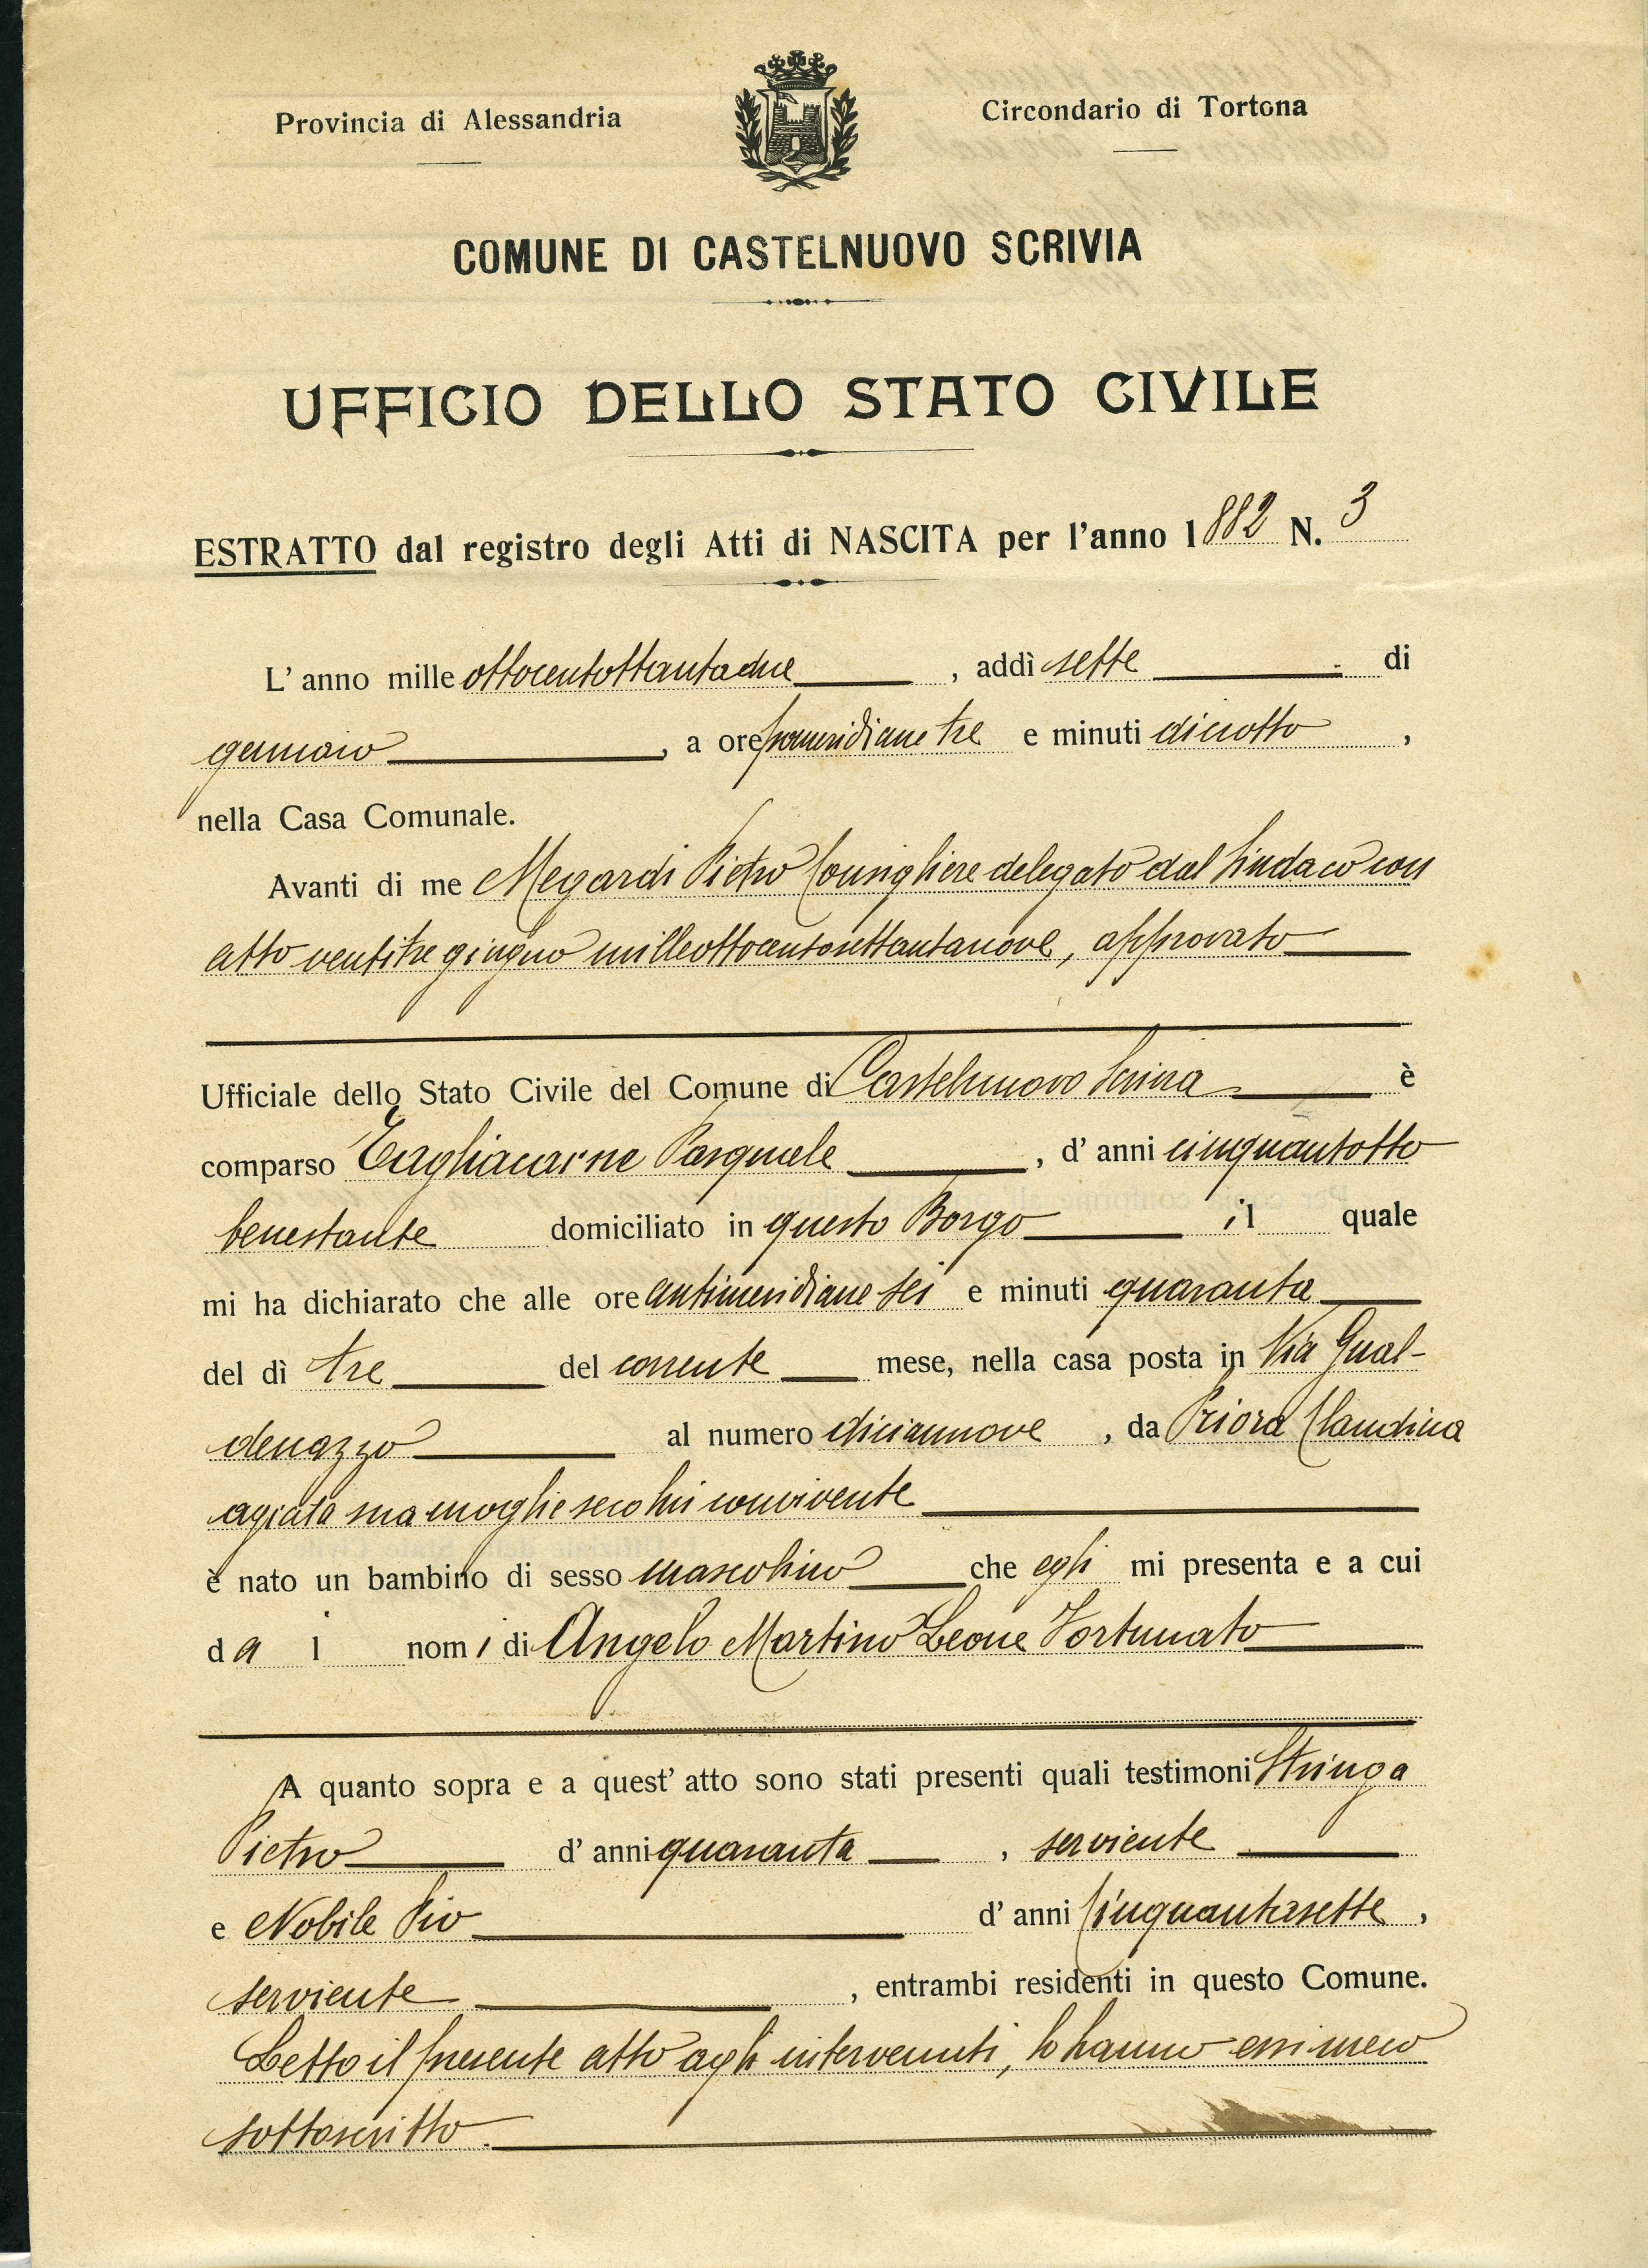 Provincia di Alessandria
Circondario di Tortona
COMUNE DI CASTELNUOVO SCRIVIA
UFFICIO DELLO STATO CIVILE
ESTRATTO dal registro degli Atti di NASCITA per l'anno 1882 N. 3
L' anno mille ottocentottantadue, addì sette di
gennaio, a ore pomeridiane tre e minuti diciotto,
nella Casa Comunale.
Avanti di me Megardi Pietro Consigliere delegato dal Sindaco con
atto ventitre giugno milleottocentosettantanove, approvato
Ufficiale dello Stato Civile del Comune di Castelnuovo Scrivia è
comparso Tagliacarne Pasquale, d' anni cinquantotto
benestante domiciliato in questo Borgo il quale
mi ha dichiarato che alle ore antimeridiane sei e minuti quaranta
del dì tre del corrente mese, nella casa posta in Via Gual-
denazzo al numero diciannove, da Priora Claudina
agiata sua moglie seco lui convivente
è nato un bambino di sesso mascolino che egli mi presenta e a cui
da i nomi di Angelo Martino Leone Fortunato
A quanto sopra e a quest' atto sono stati presenti quali testimoni Stringa
Pietro d' anni quaranta, serviente
e Nobile Pio d' anni Cinquantasette,
serviente, entrambi residenti in questo Comune.
Letto il presente atto agli intervenuti, lo hanno essi meco
sottoscritto.